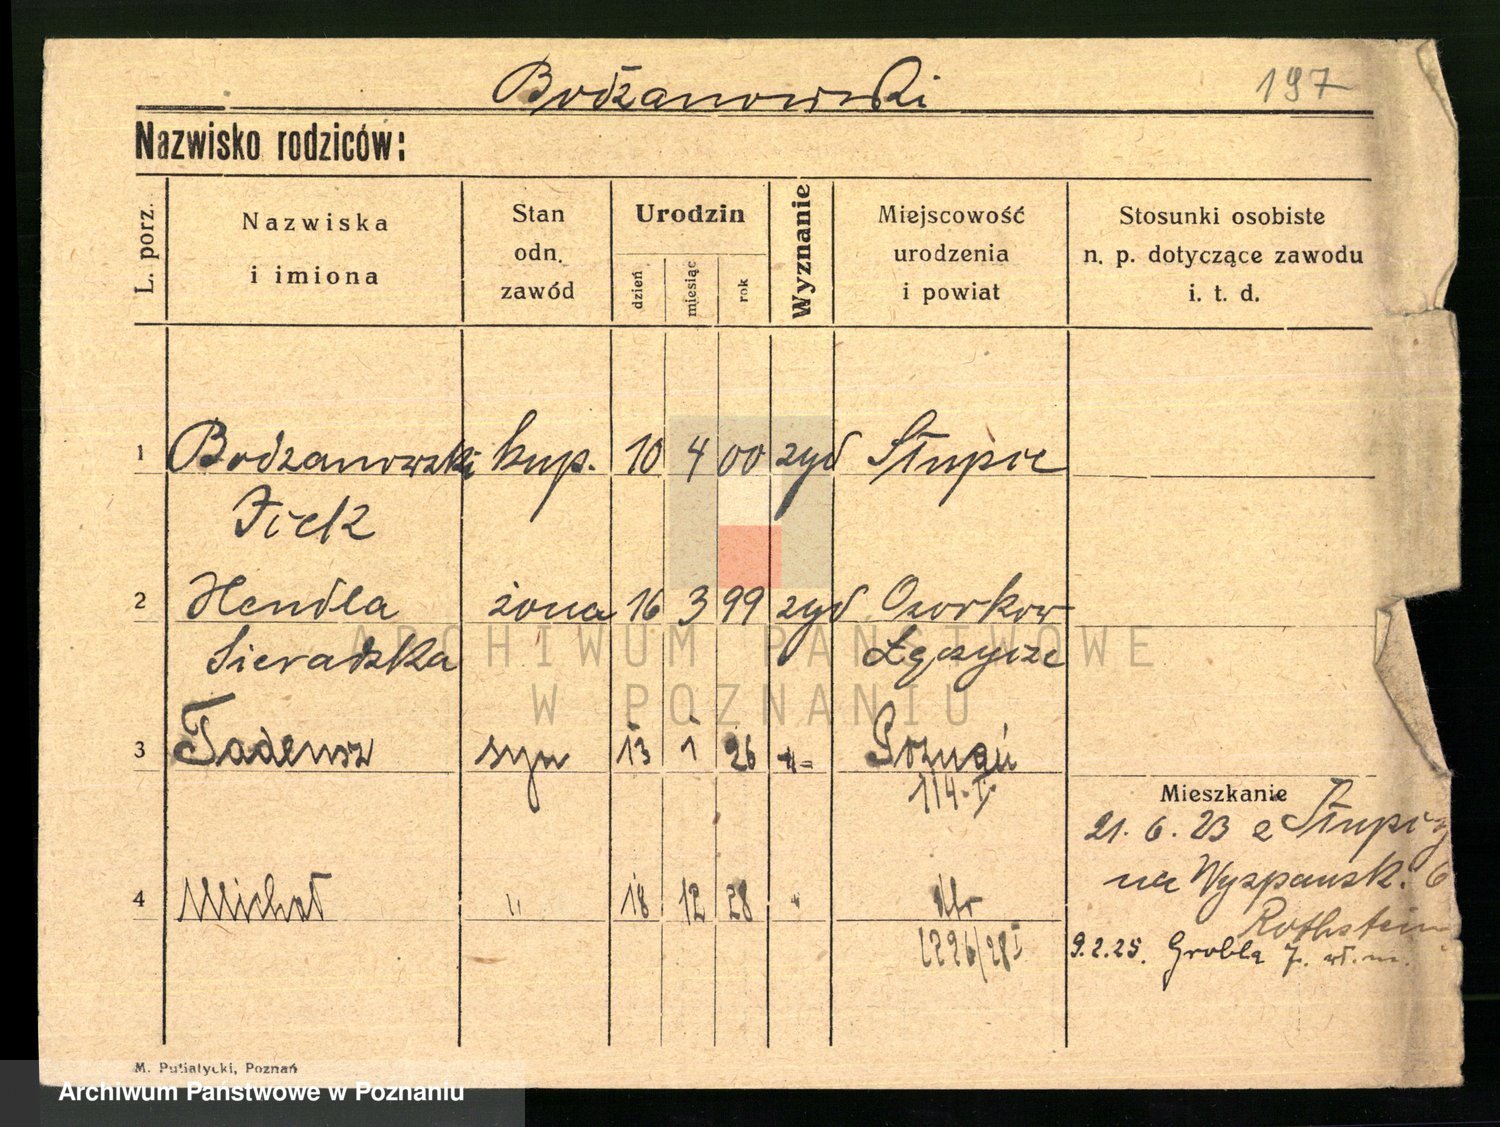 Bodzanowski
197
Nazwisko rodziców:
L. porz.
Nazwiska
i imiona
Stan
odn.
zawód
Urodzin
dzień
miesiąc
rok
Wyznanie
Miejscowość
urodzenia
i powiat
Stosunki osobiste
n. p. dotyczące zawodu
i. t. d.
1 Bodzanowski kup. 10 4 00 żyd Słupce
Icek
2 Hendla żona 16 3 99 żyd Ozorkow
Sieradzka Łęczyce
3 Tadeusz syn 13 1 26 -"- Poznań
114-I.
4 Michał " 18 12 28 "
1296/28 I
Mieszkanie
21. 6. 23 z Słupcy
na Wyspańsk. 6
Rothstein
9.2.25. Grobla 7. wł. m.
M. Putiatycki, Poznań
ARCHIWUM PAŃSTWOWE
W POZNANIU
Archiwum Państwowe w Poznaniu